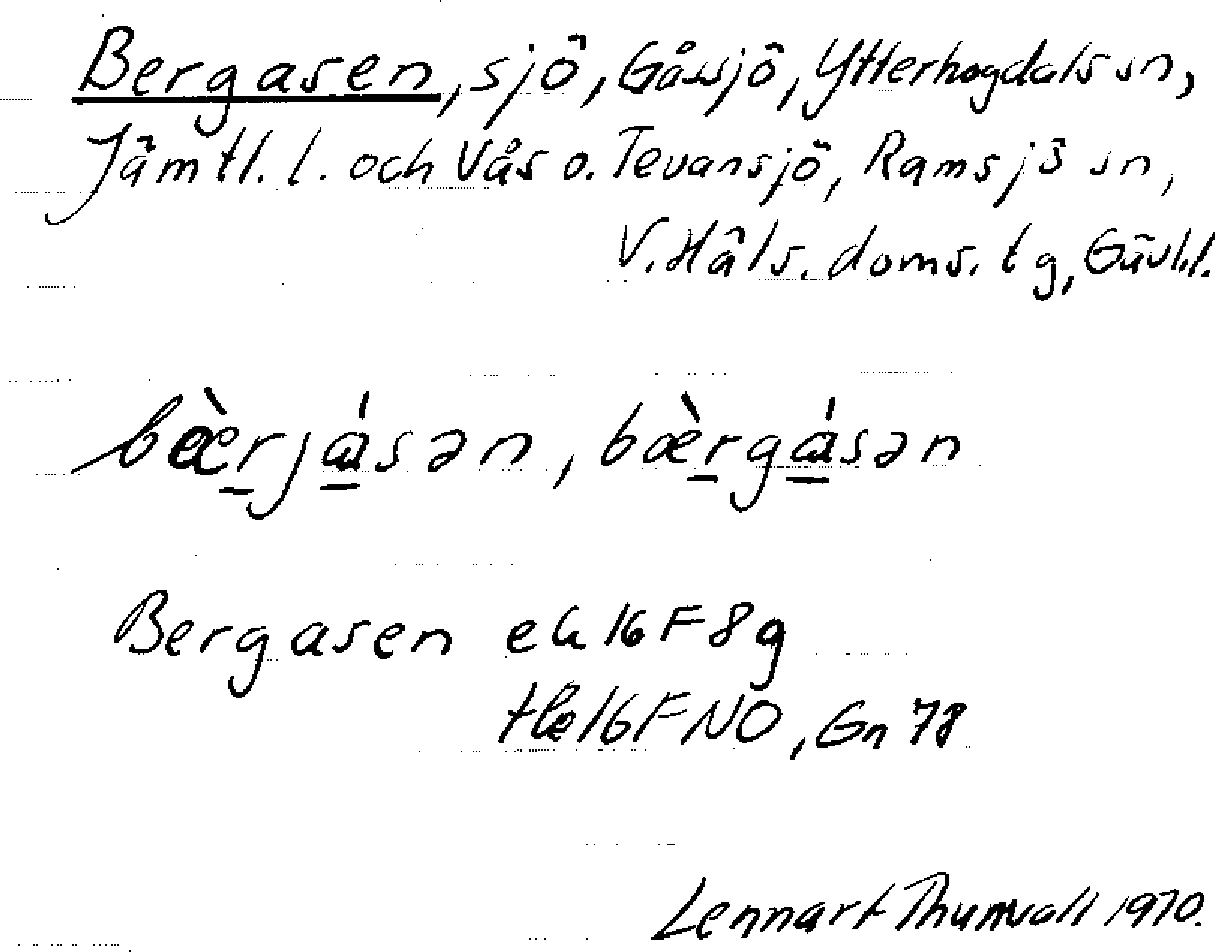 Bergasen, sjö, Gåssjö, Ytterhogdals sn,
Jämtl. l. och Vås o. Tevansjö, Ramsjö sn,
V. Häls. doms. tg, Gävl.l.
bæ̀rjása̱n, bæ̀rgása̱n
Bergasen ek 16F8g
tk 16F NO, Gn 78
Lennart Thunvall 1970.